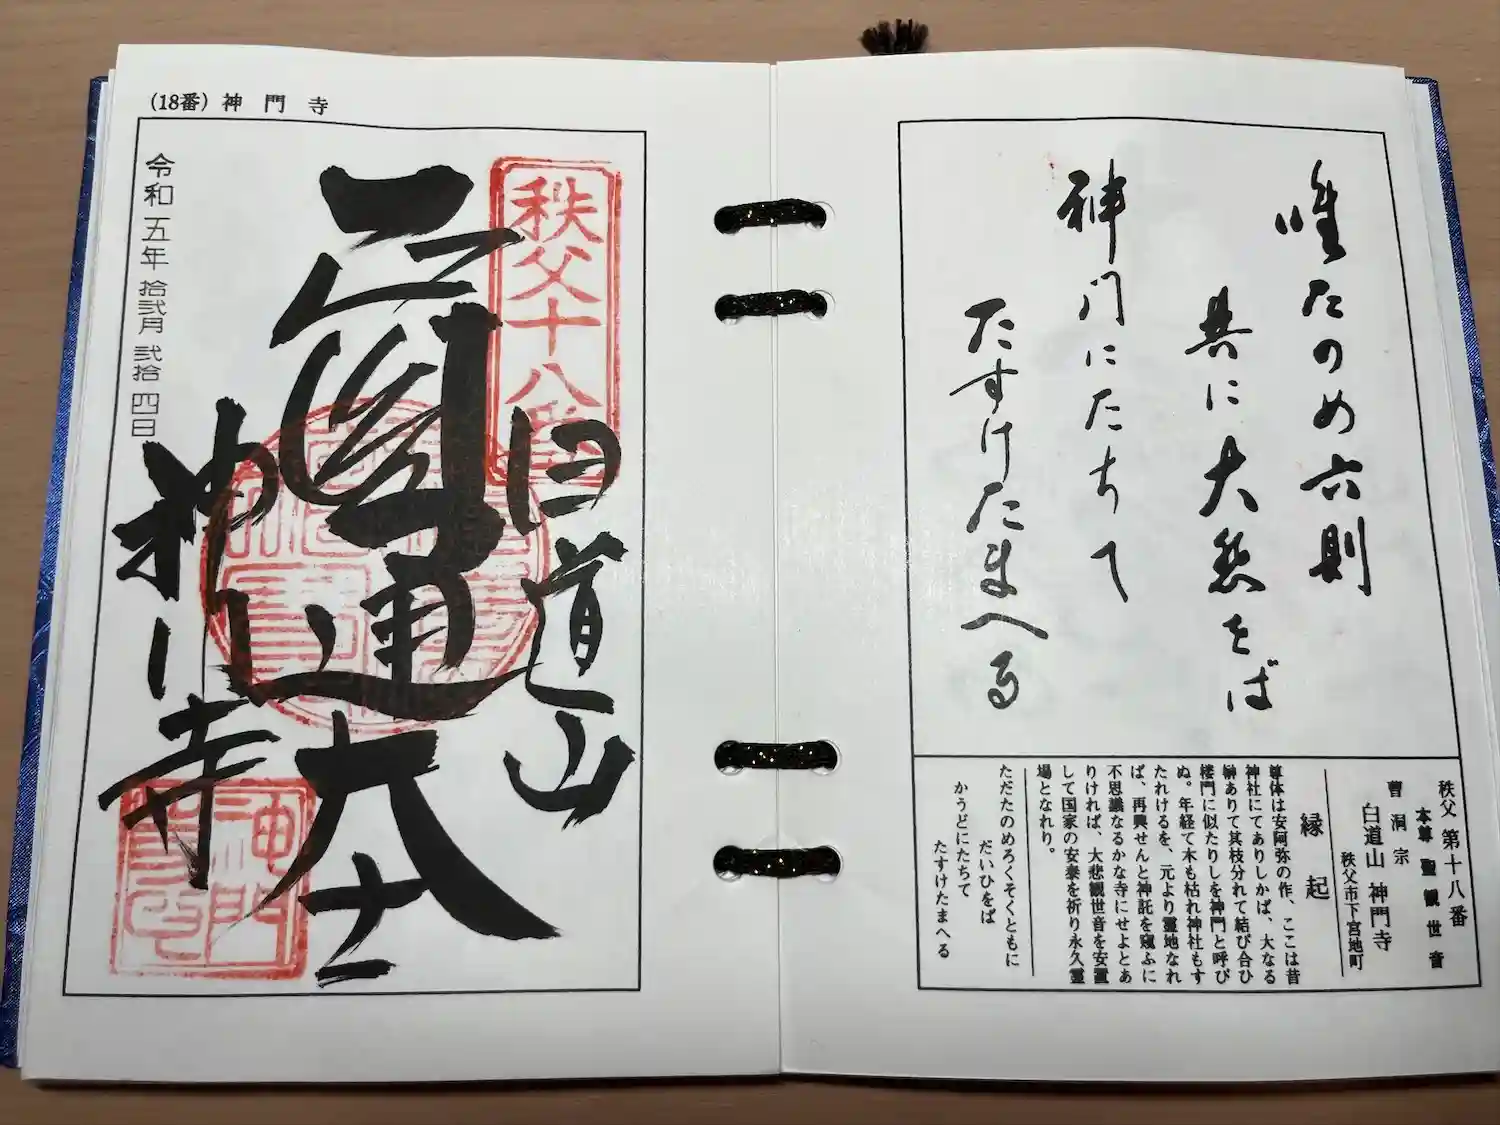 (18番) 神門寺
令和五年拾弐月弐拾四日
秩父十八番
白道山
正圓通大士
神門寺
神門
唯たのめ六則
共に大悲をば
神門にたちて
たすけたまへる
秩父 第十八番
本尊 聖観世音
曹洞宗
白道山 神門寺
秩父市下宮地町
縁起
尊体は安阿弥の作、ここは昔
神社にてありしかば、大なる
榊ありて其枝分れて結び合ひ
楼門に似たりしを神門と呼び
ぬ。年経て木も枯れ神社もす
たれけるを、元より霊地なれ
ば、再興せんと神託を窺ふに
不思議なるかな寺にせよとあ
りければ、大悲観世音を安置
して国家の安泰を祈り永久霊
場となれり。
ただたのめろくそくともに
だいひをば
かうどにたちて
たすけたまへる